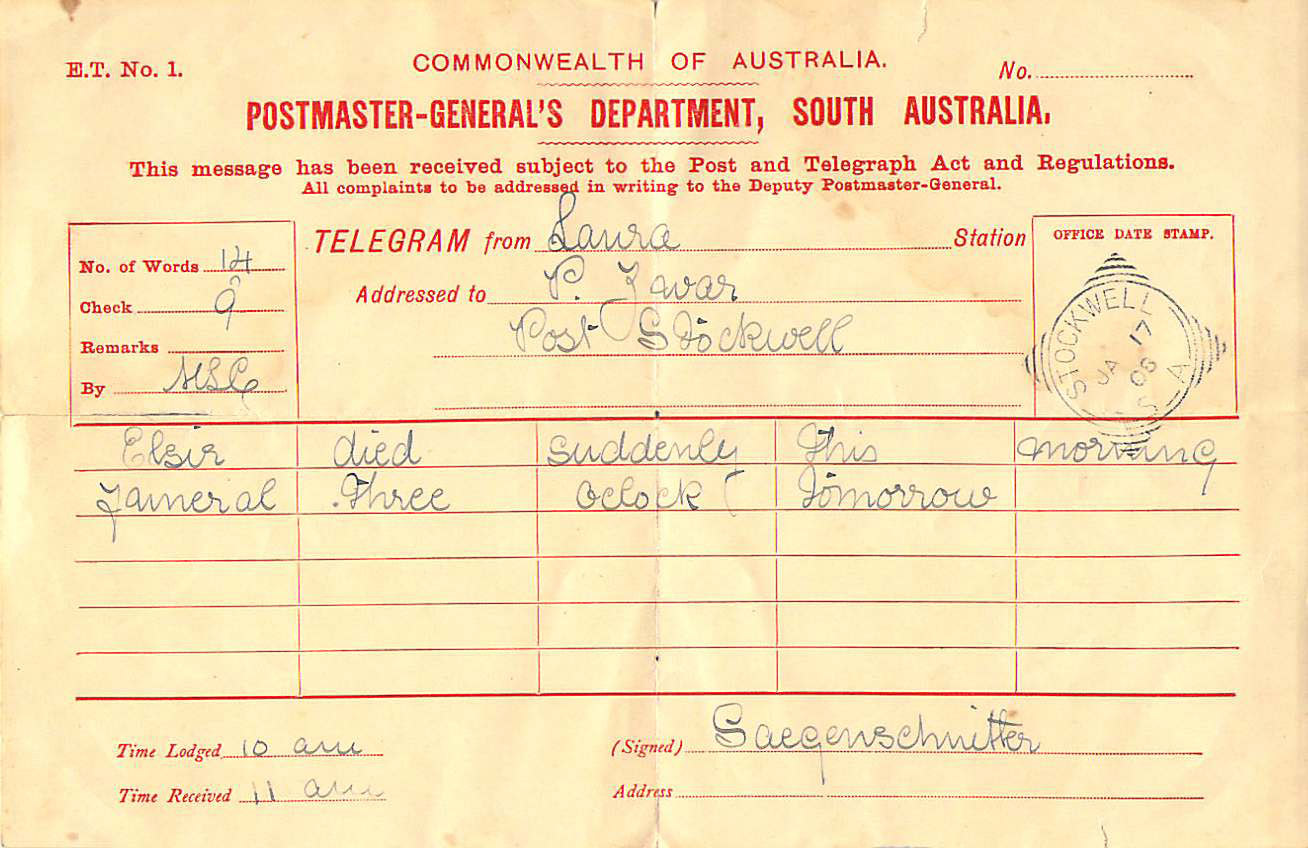 E.T. No. 1.
COMMONWEALTH OF AUSTRALIA.
No.
POSTMASTER-GENERAL'S DEPARTMENT, SOUTH AUSTRALIA.
This message has been received subject to the Post and Telegraph Act and Regulations.
All complaints to be addressed in writing to the Deputy Postmaster-General.
No. of Words 14
Check 9
Remarks
By
TELEGRAM from Laura Station
Addressed to P. Zwar
Post Stockwell
OFFICE DATE STAMP.
STOCKWELL
JA 17
08
S A
Elsie died suddenly this morning
Funeral Three Oclock Tomorrow
Time Lodged 10 am
Time Received 11 am
(Signed) Saegenschnitter
Address